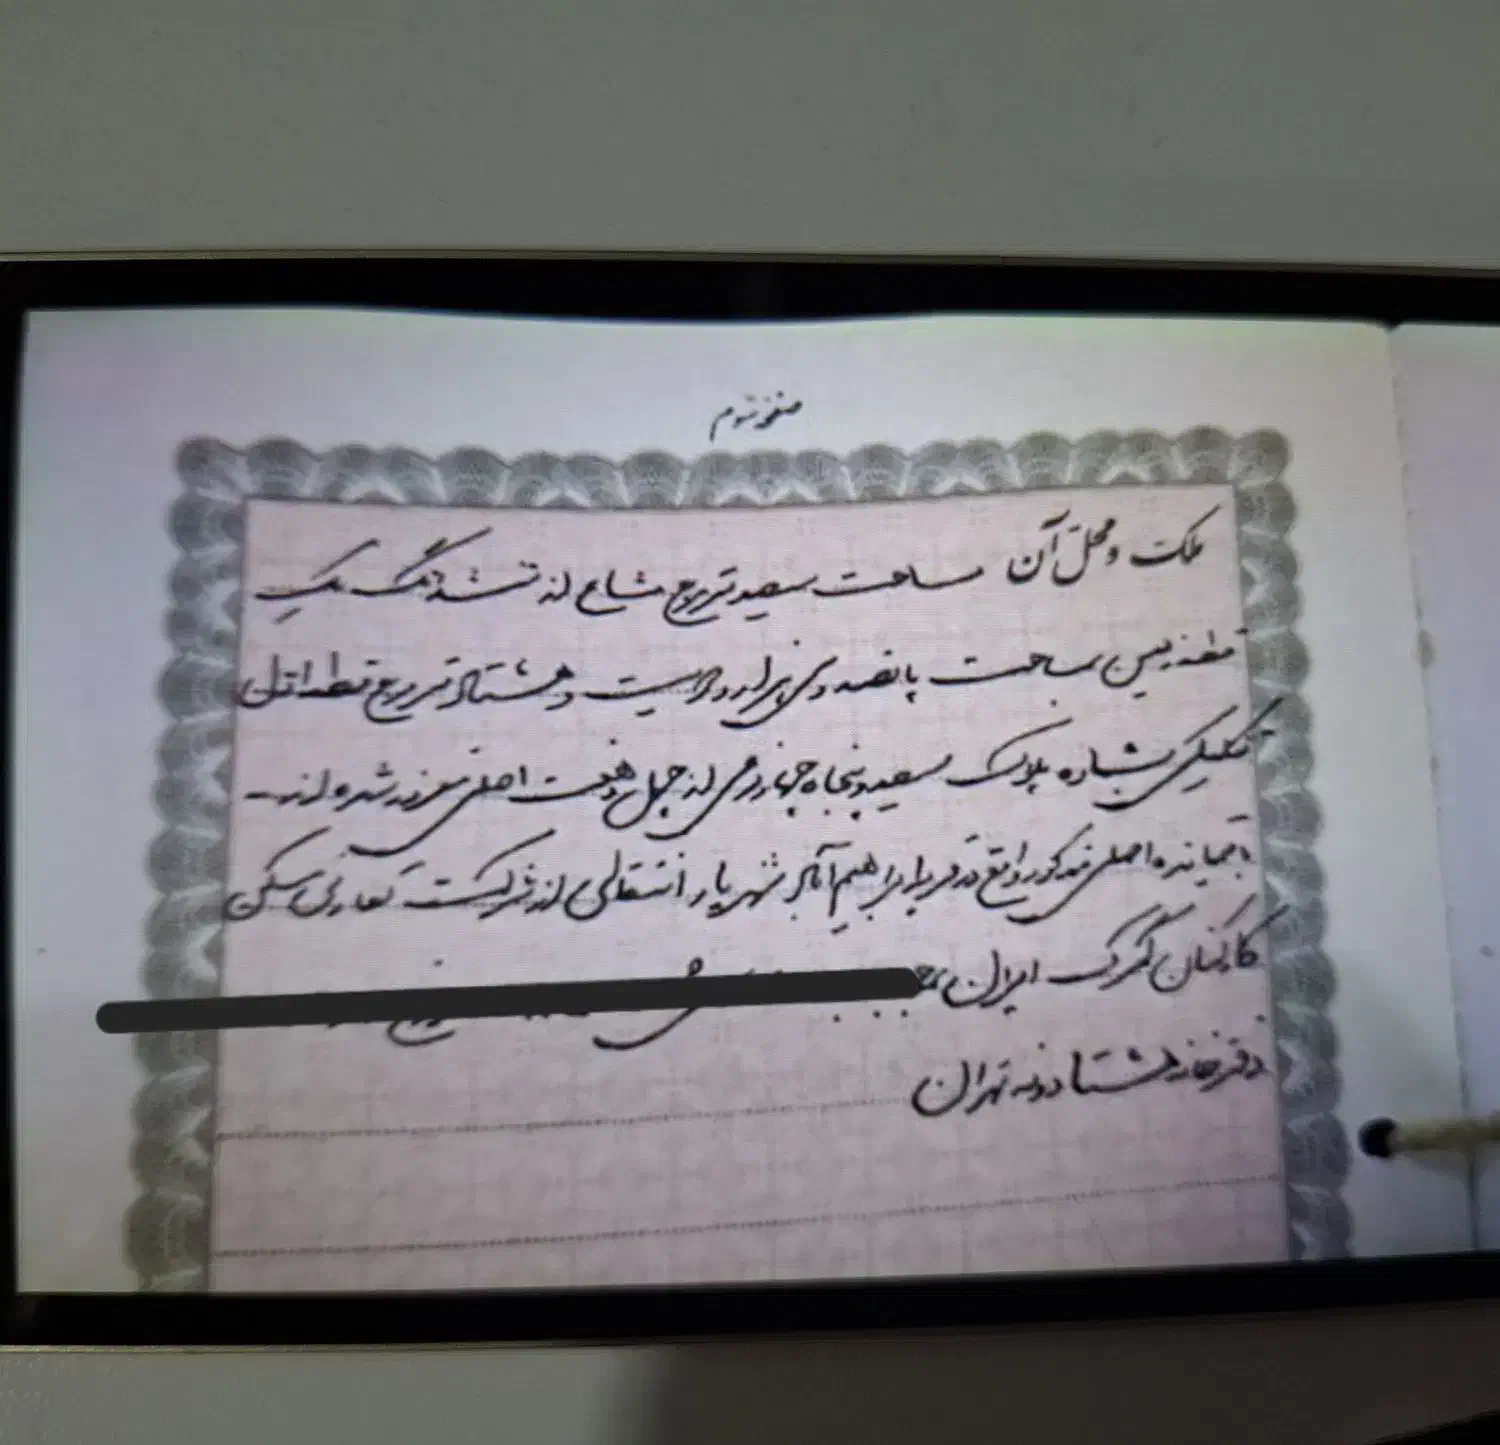 صفحه سوم
ملک و محل آن مساحت سیصد متر مربع مشاع از ششدانگ یک
قطعه زمین بمساحت پانصد و سی هزار و دویست و هشتاد متر مربع قطعه اول
تفکیکی بشماره پلاک سیصد و پنجاه و چهار فرعی از چهل و هفت اصلی مفروز شده از
باقیمانده اصلی مذکور واقع در قریه ابراهیم آباد شهریار انتقالی از شرکت تعاونی مسکن
کارکنان گمرک ایران
دفترخانه هشتاد و نه تهران